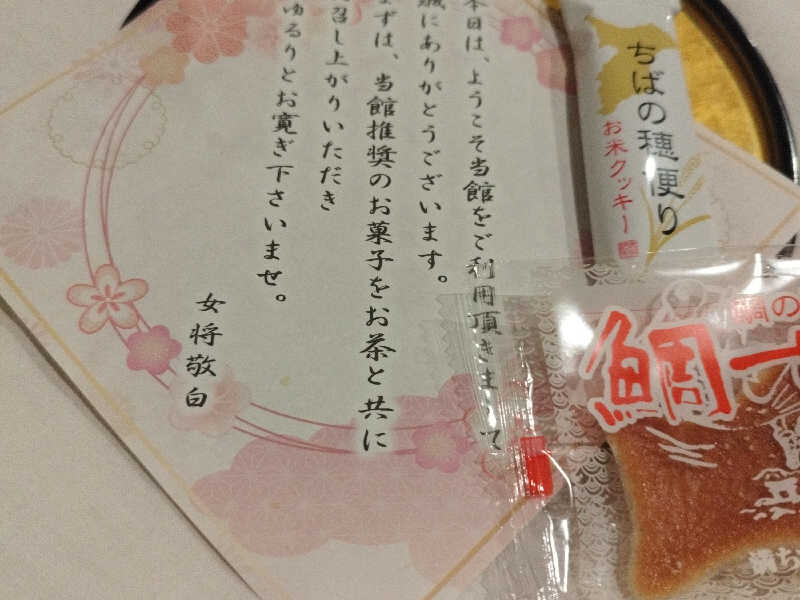 本日は、ようこそ当館をご利用頂きまして
誠にありがとうございます。
まずは、当館推奨のお菓子をお茶と共に
召し上がりいただき
ゆるりとお寛ぎ下さいませ。
女将敬白
ちばの穂便り
お米クッキー
鯛の
鯛